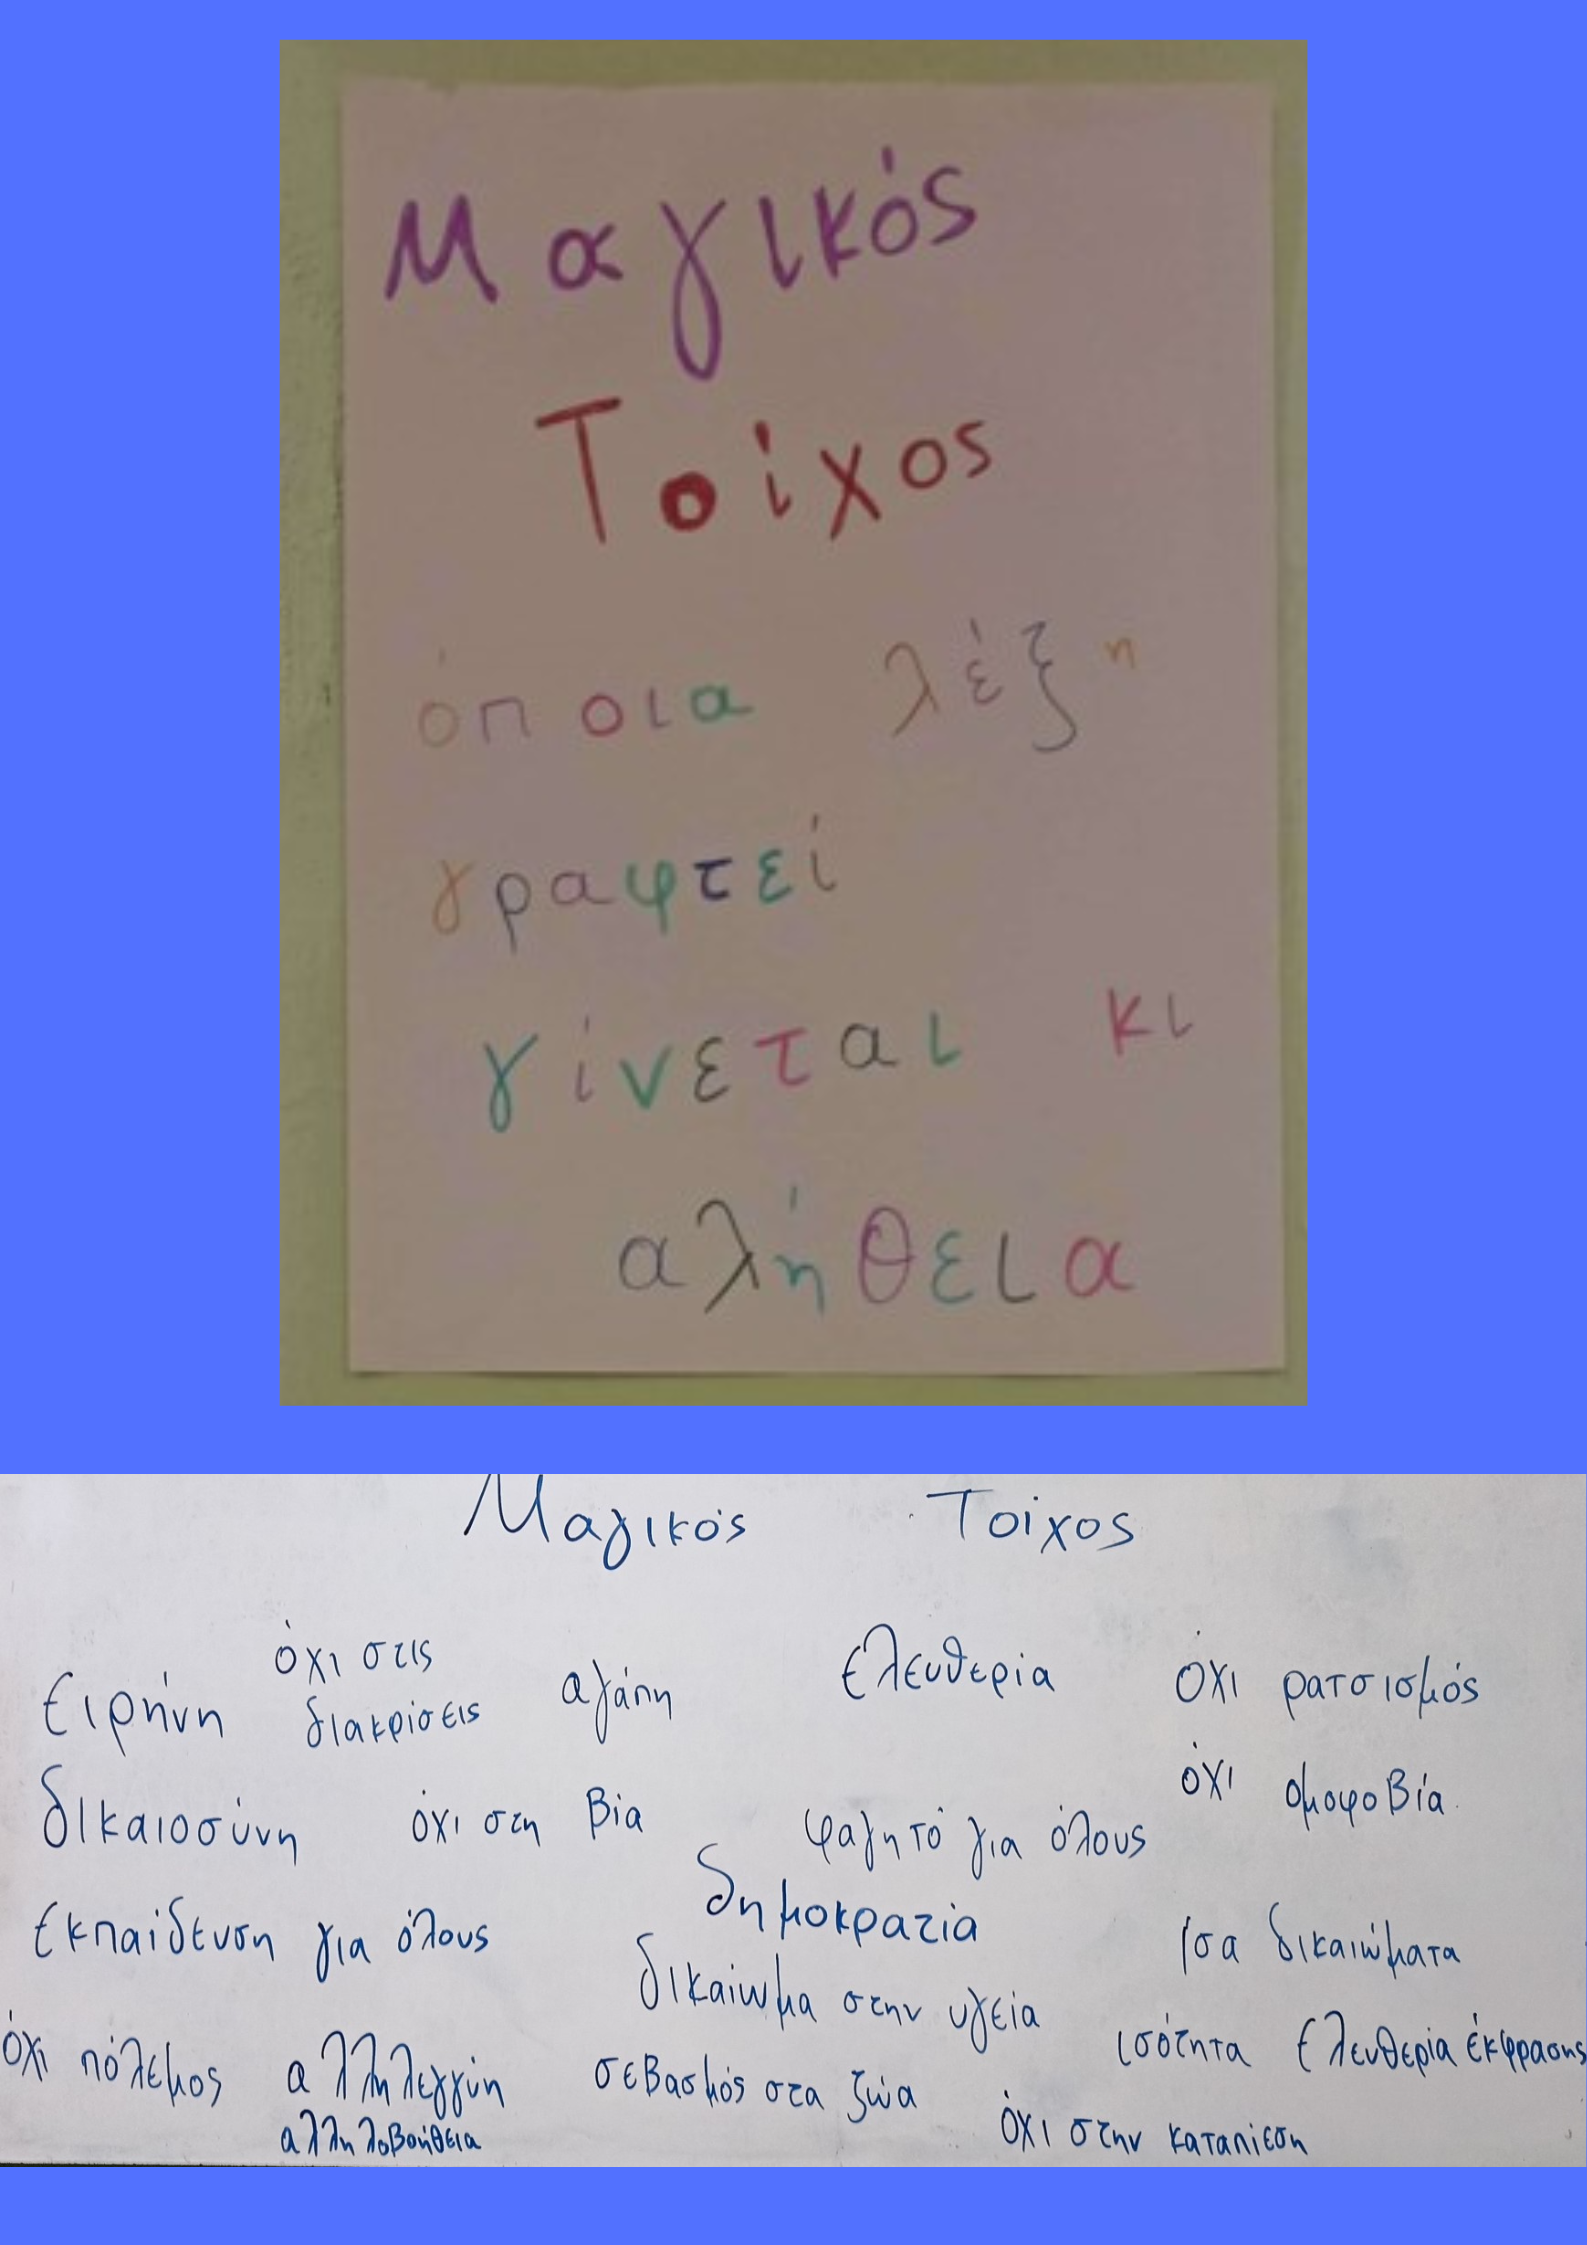 Μαγικός
Τοίχος
όποια λέξη
γραφτεί
γίνεται κι
αλήθεια
Μαγικός Τοίχος
ειρήνη
όχι στις
διακρίσεις
αγάπη
ελευθερία
όχι ρατσισμός
δικαιοσύνη
όχι στη βία
φαγητό για όλους
όχι ομοφοβία
εκπαίδευση για όλους
δημοκρατία
δικαίωμα στην υγεία
ίσα δικαιώματα
όχι πόλεμος
αλληλεγγύη
αλληλοβοήθεια
σεβασμός στα ζώα
ισότητα
ελευθερία έκφρασης
όχι στην καταπιεση